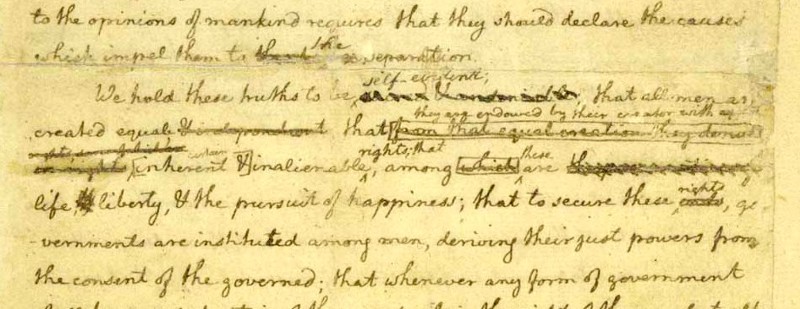 to the opinions of mankind requires that they should declare the causes
which impel them to the separation.
self evident;
We hold these truths to be sacred & undeniable, that all men are
they are endowed by their creator with
created equal & independent that from that equal creation they derive
certain rights; that these
in rights inherent & inalienable, among which are
life, & liberty, & the pursuit of happiness; that to secure these ends, go
rights
-vernments are instituted among men, deriving their just powers from
the consent of the governed; that whenever any form of government